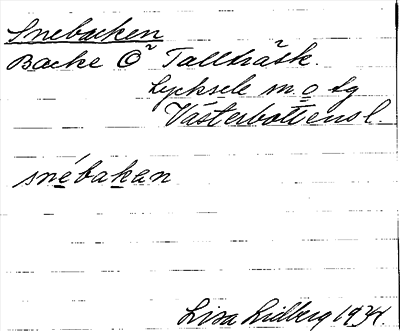 Snebacken
Backe Ö² Tallträsk.
Lycksele m o lg
Västerbottens l.
snébakan
Lisa Lidberg 1934.